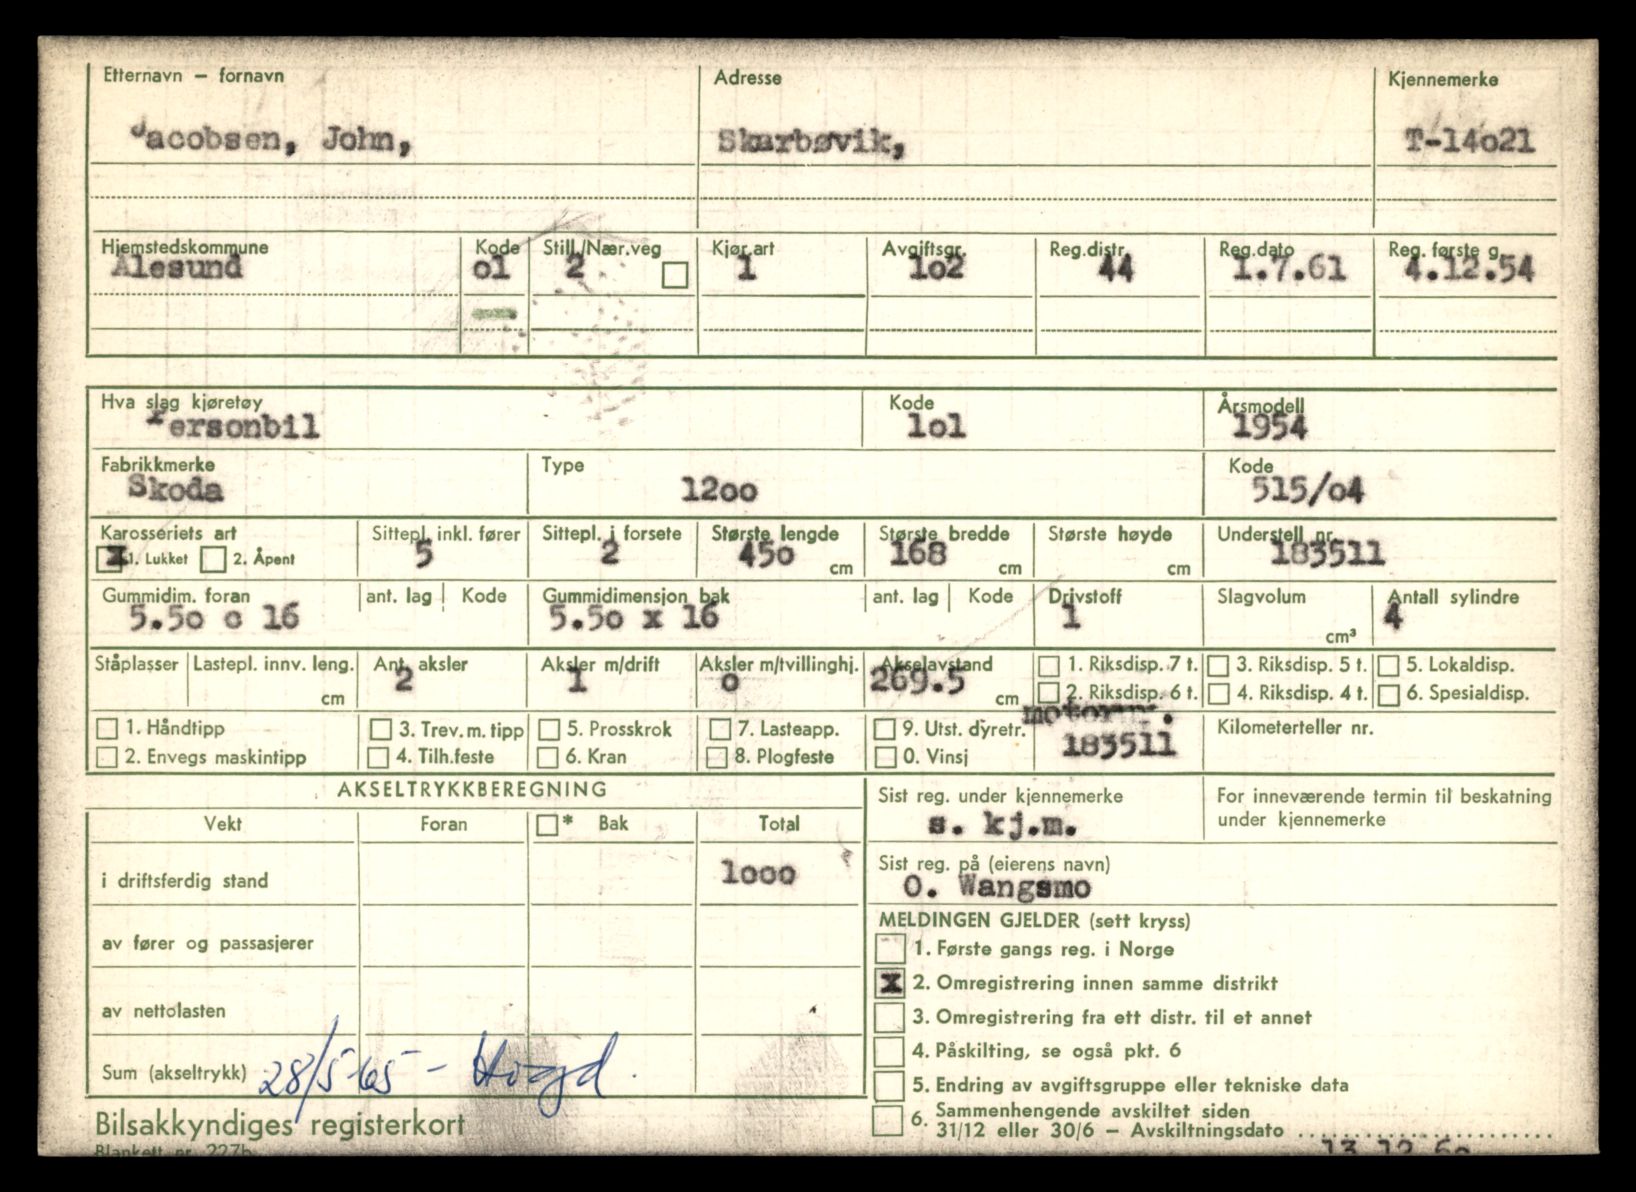 Etternavn – fornavn Adresse Kjennemerke
Jacobsen, John, Skarbøvik, T-14o21
Hjemstedskommune Kode Still./Nær.veg Kjør.art Avgiftsgr. Reg.distr. Reg.dato Reg. første g.
Ålesund o1 2 1 1o2 44 1.7.61 4.12.54
Hva slag kjøretøy Kode Årsmodell
Personbil 1o1 1954
Fabrikkmerke Type Kode
Skoda 12oo 515/o4
Karosseriets art Sittepl. inkl. fører Sittepl. i forsete Største lengde Største bredde Største høyde Understell nr.
X 1. Lukket 2. Åpent 5 2 45o cm 168 cm cm 183511
Gummidim. foran ant. lag Kode Gummidimensjon bak ant. lag Kode Drivstoff Slagvolum Antall sylindre
5.5o o 16 5.5o x 16 1 cm³ 4
Ståplasser Lastepl. innv. leng. Ant. aksler Aksler m/drift Aksler m/tvillinghj. Akselavstand 1. Riksdisp. 7 t. 3. Riksdisp. 5 t. 5. Lokaldisp.
cm 2 1 o 269.5 cm 2. Riksdisp. 6 t. 4. Riksdisp. 4 t. 6. Spesialdisp.
1. Håndtipp 3. Trev. m. tipp 5. Prosskrok 7. Lasteapp. 9. Utst. dyretr. motornr. Kilometerteller nr.
2. Envegs maskintipp 4. Tilh.feste 6. Kran 8. Plogfeste 0. Vinsj 183511
AKSELTRYKKBEREGNING
Vekt Foran * Bak Total
i driftsferdig stand 1ooo
av fører og passasjerer
av nettolasten
Sum (akseltrykk) 28/5-65 - Høgd.
Bilsakkyndiges registerkort
Blankett nr. 227b
Sist reg. under kjennemerke For inneværende termin til beskatning
under kjennemerke
s. kj.m.
Sist reg. på (eierens navn)
O. Wangsmo
MELDINGEN GJELDER (sett kryss)
1. Første gangs reg. i Norge
X 2. Omregistrering innen samme distrikt
3. Omregistrering fra ett distr. til et annet
4. Påskilting, se også pkt. 6
5. Endring av avgiftsgruppe eller tekniske data
6. Sammenhengende avskiltet siden
31/12 eller 30/6 – Avskiltningsdato ........................
13.12.6o